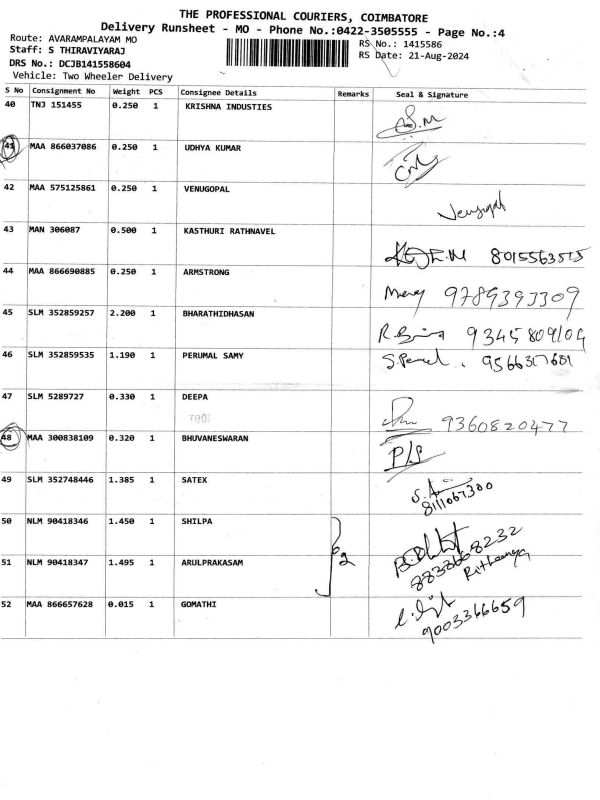 THE PROFESSIONAL COURIERS, COIMBATORE
Delivery Runsheet - MO - Phone No.:0422-3505555 - Page No.:4
Route: AVARAMPALAYAM MO
RS No.: 1415586
Staff: S THIRAVIYARAJ
RS Date: 21-Aug-2024
DRS No.: DCJB141558604
Vehicle: Two Wheeler Delivery
S No Consignment No Weight PCS Consignee Details Remarks Seal & Signature
40 TNJ 151455 0.250 1 KRISHNA INDUSTIES
S.M
41 MAA 866037086 0.250 1 UDHYA KUMAR
42 MAA 575125861 0.250 1 VENUGOPAL
Venugopal
43 MAN 306087 0.500 1 KASTHURI RATHNAVEL
8015563515
44 MAA 866690885 0.250 1 ARMSTRONG
9789393309
45 SLM 352859257 2.200 1 BHARATHIDHASAN
9345809109
46 SLM 352859535 1.190 1 PERUMAL SAMY
9566317681
47 SLM 5289727 0.330 1 DEEPA
9360820477
48 MAA 300838109 0.320 1 BHUVANESWARAN
P/S
49 SLM 352748446 1.385 1 SATEX
8111067300
50 NLM 90418346 1.450 1 SHILPA
8838668232
51 NLM 90418347 1.495 1 ARULPRAKASAM
2
52 MAA 866657628 0.015 1 GOMATHI
9003366659